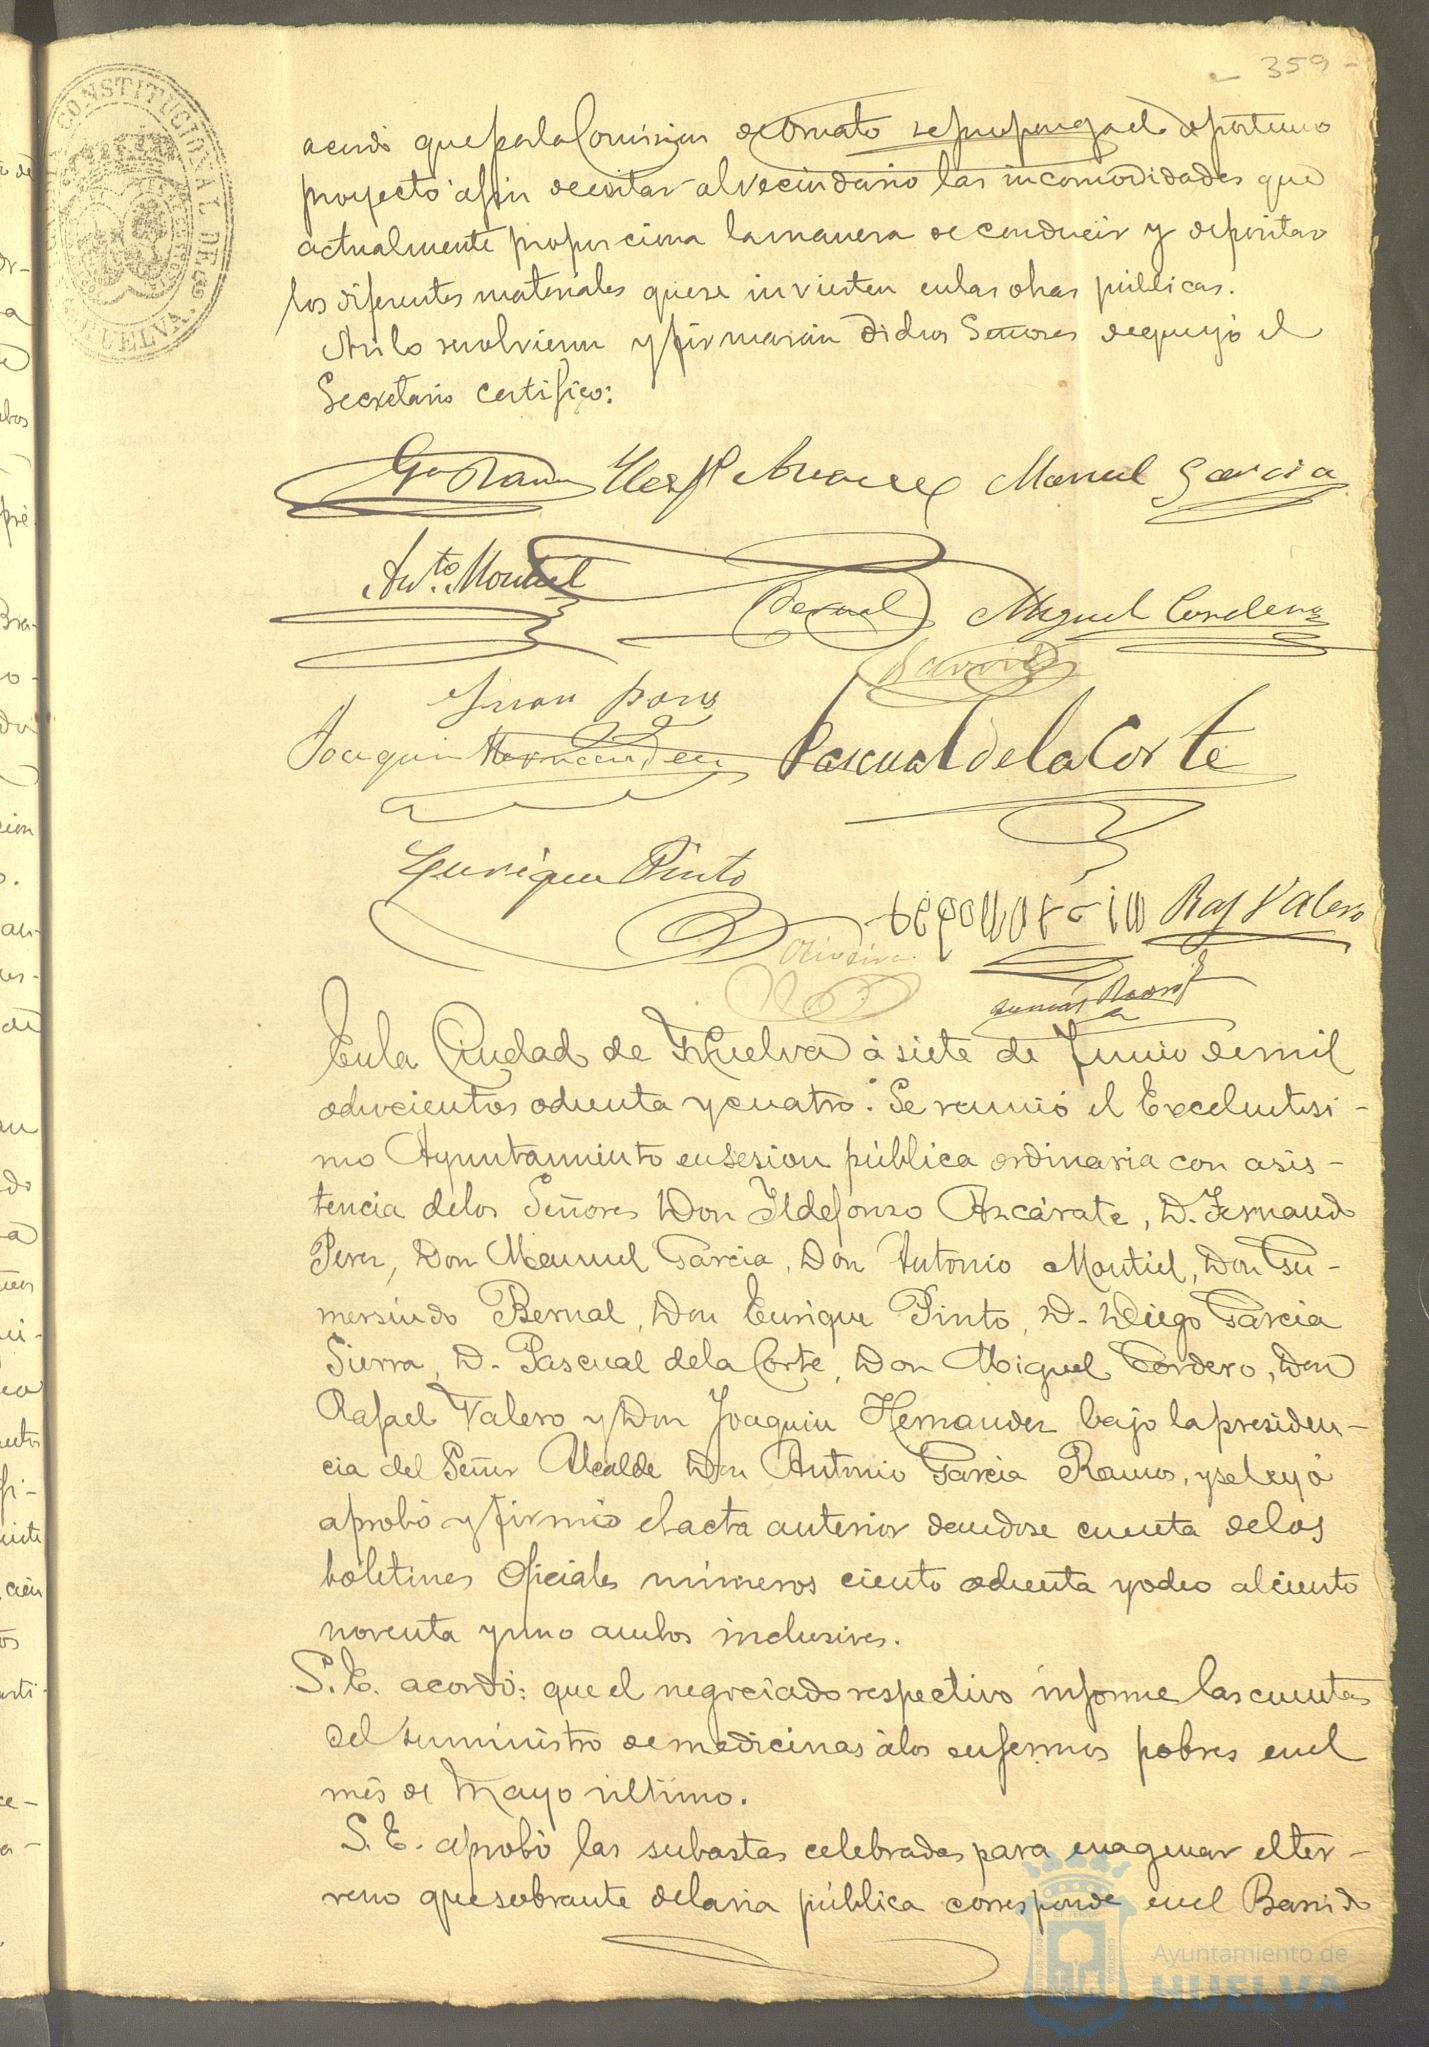 - 359 -
acordó que por la Comision de Ornato se proponga el oportuno
proyecto afin de evitar al vecindario las incomodidades que
actualmente proporciona la manera de conducir y depositar
los diferentes materiales que se invierten en las obras públicas.
Asi lo resolvieron y firmarán dichos Señores de que yo el
Secretario certifico:
Manuel Garcia
Anto. Montiel
Bernal Miguel Cordero
Juan
Joaquin Hernandez Pascual de la Corte
Enrique Pinto
Raf Valero
Oliveira
En la Ciudad de Huelva á siete de Junio de mil
ochocientos ochenta y cuatro: Se reunió el Excelentisi-
mo Ayuntamiento en sesion pública ordinaria con asis-
tencia de los Señores Don Ildefonso Azcárate, D. Fernando
Perez, Don Manuel Garcia, Don Antonio Montiel, Don Gu-
mersindo Bernal, Don Enrique Pinto, D. Diego Garcia
Sierra, D. Pascual de la Corte, Don Miguel Cordero, Don
Rafael Valero y Don Joaquin Hernandez bajo la presiden-
cia del Señor Alcalde Don Antonio Garcia Ramos, y se leyó
aprobó y firmó el acta anterior dandose cuenta de los
boletines oficiales números ciento ochenta y ocho al ciento
noventa y uno ambos inclusives.
S. E. acordó: que el negociado respectivo informe las cuentas
del suministro de medicinas á los enfermos pobres en el
més de Mayo último.
S. E. aprobó las subastas celebradas para enagenar el ter-
reno que sobrante de la via pública corresponde en el Barrio
CONSTITUCIONAL DE
HUELVA.
Ayuntamiento de
HUELVA